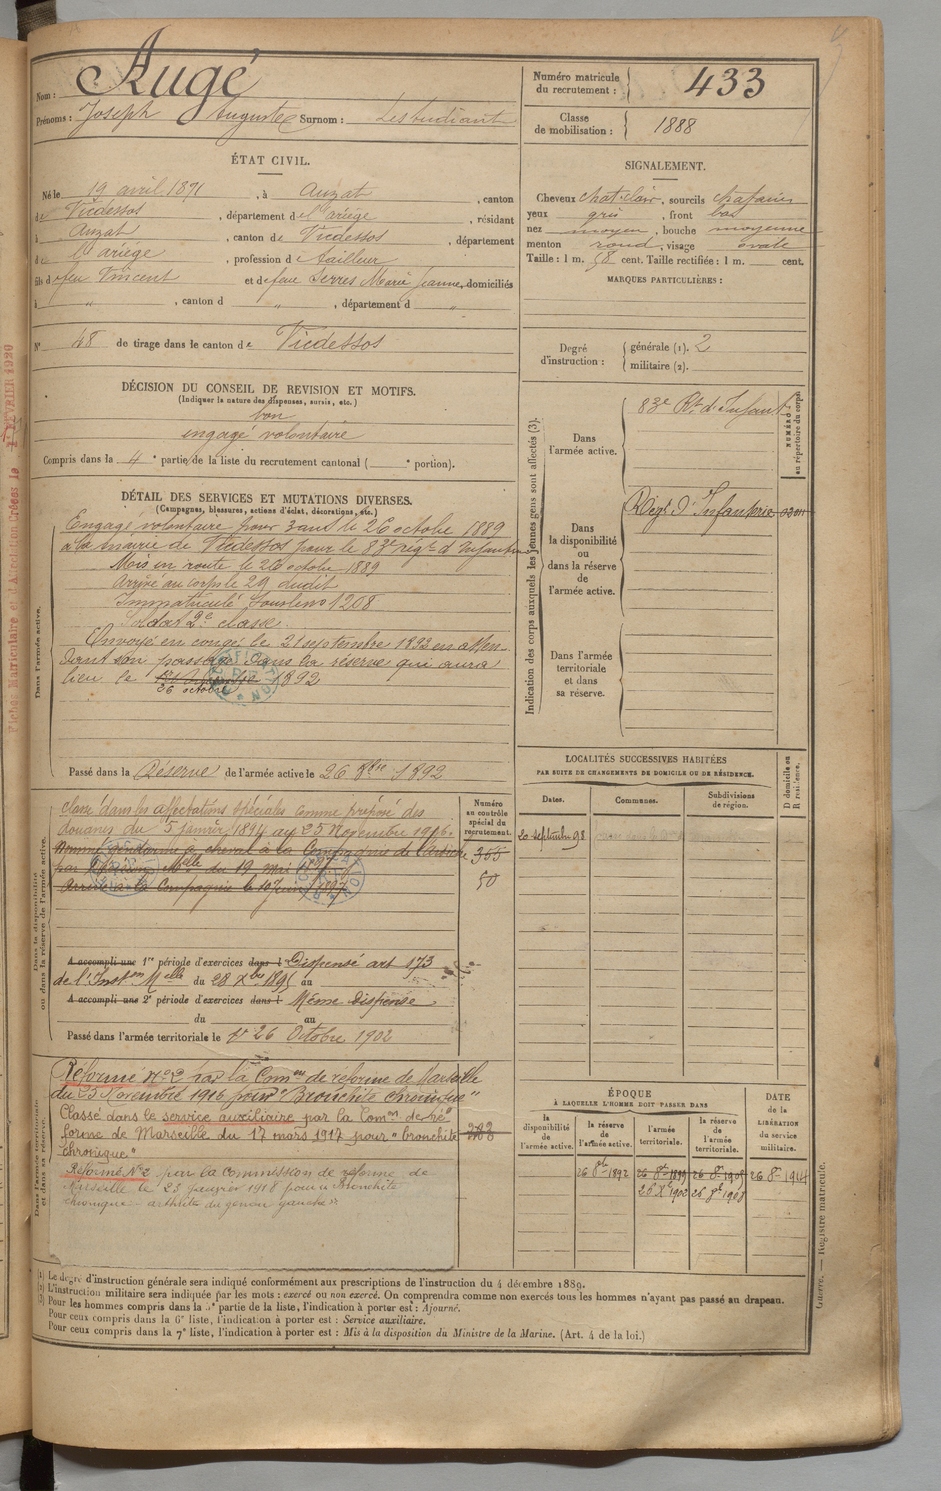 Nom : Augé
Prénoms : Joseph Auguste Surnom : Lestudiant
Numéro matricule du recrutement : 433
Classe de mobilisation : 1888
ÉTAT CIVIL.
Né le 19 avril 1871, à Auzat, canton
de Vicdessos, département de l'ariège, résidant
à Auzat, canton de Vicdessos, département
de l'ariège, profession de tailleur
fils de feu Vincent et de feue Serres Marie Jeanne, domiciliés
à " , canton d " , département d "
N° 48 de tirage dans le canton de Vicdessos
SIGNALEMENT.
Cheveux chat. clair, sourcils
yeux gris, front bas
nez moyen, bouche moyenne
menton rond, visage ovale
Taille : 1 m. 58 cent. Taille rectifiée : 1 m. cent.
MARQUES PARTICULIÈRES :
Degré d'instruction : générale (1). 2
militaire (2).
DÉCISION DU CONSEIL DE REVISION ET MOTIFS.
(Indiquer la nature des dispenses, sursis, etc.)
bon
engagé volontaire
Compris dans la 4e partie de la liste du recrutement cantonal ( e portion).
DÉTAIL DES SERVICES ET MUTATIONS DIVERSES.
(Campagnes, blessures, actions d'éclat, décorations, etc.)
Dans l'armée active.
Engagé volontaire pour 3 ans le 26 octobre 1889
à la mairie de Vicdessos pour le 83e régt d'Infanterie
Mis en route le 26 octobre 1889
Arrivé au corps le 29 dudit
Immatriculé sous le no 1208
Soldat 2e classe
Envoyé en congé le 21 septembre 1892 en atten
dant son passage dans la réserve qui aura
lieu le 1892
26 octobre
Passé dans la Réserve de l'armée active le 26 8bre 1892
Indication des corps auxquels les jeunes gens sont affectés (3).
Dans l'armée active.
83e Rt d'Infant
NUMÉRO au répertoire du corps
Dans la disponibilité ou dans la réserve de l'armée active.
Régt d'Infanterie
Dans l'armée territoriale et dans sa réserve.
Dans la disponibilité ou dans la réserve de l'armée active.
Classé dans les affectations spéciales comme préposé des
douanes du 5 janvier 1914 au 23 Novembre 1916.
Nommé gendarme à cheval à la Compagnie de l'Ardèche
par du 19 mai 1897
Arrivé à la Compagnie le 10 juin 1897
Numéro au contrôle spécial du recrutement.
355
50
A accompli une 1re période d'exercices dans l Dispensé art 173
de l'Inston Melle du 28 Xbre 1895 au
A accompli une 2e période d'exercices dans l Même dispense
du au
Passé dans l'armée territoriale le 1er 26 Octobre 1902
LOCALITÉS SUCCESSIVES HABITÉES
PAR SUITE DE CHANGEMENTS DE DOMICILE OU DE RÉSIDENCE.
Dates. Communes. Subdivisions de région. D domicile ou R résidence.
20 septembre 98
Dans l'armée territoriale et dans sa réserve.
Réformé No 2 par la Comon de réforme de Marseille
du 23 Novembre 1916 pour "Bronchite chronique"
Classé dans le service auxiliaire par la Comon de ré
forme de Marseille du 17 mars 1917 pour "bronchite
chronique"
Réformé No 2 par la commission de réforme de
Marseille le 23 janvier 1918 pour "Bronchite
chronique - arthrite du genou gauche".
ÉPOQUE
À LAQUELLE L'HOMME DOIT PASSER DANS
la disponibilité de l'armée active. la réserve de l'armée active. l'armée territoriale. la réserve de l'armée territoriale.
DATE de la LIBÉRATION du service militaire.
26 8bre 1892 26 8bre 1899 26 8bre 1905 26 8bre 1914
26 Xbre 1902 26 8bre 1908
(1) Le degré d'instruction générale sera indiqué conformément aux prescriptions de l'instruction du 4 décembre 1889.
(2) L'instruction militaire sera indiquée par les mots : exercé ou non exercé. On comprendra comme non exercés tous les hommes n'ayant pas passé au drapeau.
(3) Pour les hommes compris dans la 5e partie de la liste, l'indication à porter est : Ajourné.
Pour ceux compris dans la 6e liste, l'indication à porter est : Service auxiliaire.
Pour ceux compris dans la 7e liste, l'indication à porter est : Mis à la disposition du Ministre de la Marine. (Art. 4 de la loi.)
Guerre. — Registre matricule.